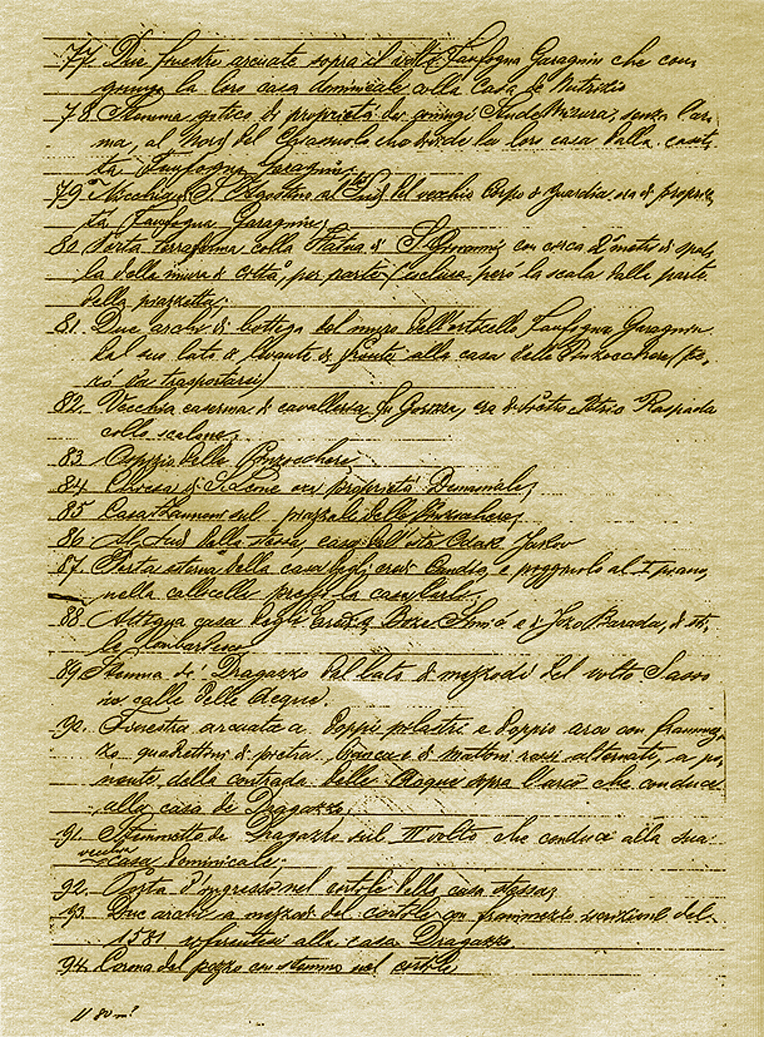 77. Due finestre arcuate sopra il volto Fanfogna Garagnin che con-
giunge la loro casa dominicale colla Casa de Nutrizio
78. Stemma gotico di proprietà dei coniugi senza l'ar-
ma, al Nord del Chiassuolo che divide la loro casa dalla caset-
ta Fanfogna Garagnin;
79. Nicchia S. Agostino al Sud del vecchio Corpo di Guardia ora di proprie-
tà Fanfogna Garagnin;
80. Porta terraferma colla Statua di S. Giovanni con circa 2 metri di spal-
la delle mura di città, per parte (esclusa però la scala dalla parte
della piazzetta;
81. Due archi di bottega del muro dell'orticello Fanfogna Garagnin
dal suo lato di levante di fronte alla casa delle Pinzocchere (pe-
rò da trasportarsi)
82. Vecchia caserma di cavalleria ora di Raspada
collo scalone;
83. Ospizio delle Pinzocchere
84. Chiesa di S. Leone ora proprietà Demaniale;
85. Casa Zannoni sul piazzale delle Pinzochere;
86. Al Sud della stessa, casa dell'oste
87. Porta esterna della casa degli eredi Candia, e poggiuolo al I piano,
nella callicella presso la
88. Attigua casa degli Eredi e di Jozo Barada, di sti-
le lombardesco
89. Stemma de' Dragazzo dal lato di mezzodì del volto Sasso
in calle delle Acque.
90. Finestra arcuata a doppi pilastri e doppio arco con frammez-
zo quadrettoni di pietra bianca e di mattoni rossi alternati, a po-
nente della contrada delle Acque sopra l'arco che conduce
alla casa de Dragazzo;
91. Stemmetto de Dragazzo sul III volto che conduce alla sua
vecchia casa dominicale;
92. Porta d'ingresso nel cortile della casa stessa;
93. Due archi a mezzodì del cortile con frammezzo iscrizione del
1581 riferentesi alla casa Dragazzo.
94. Corona del pozzo con stemma nel cortile